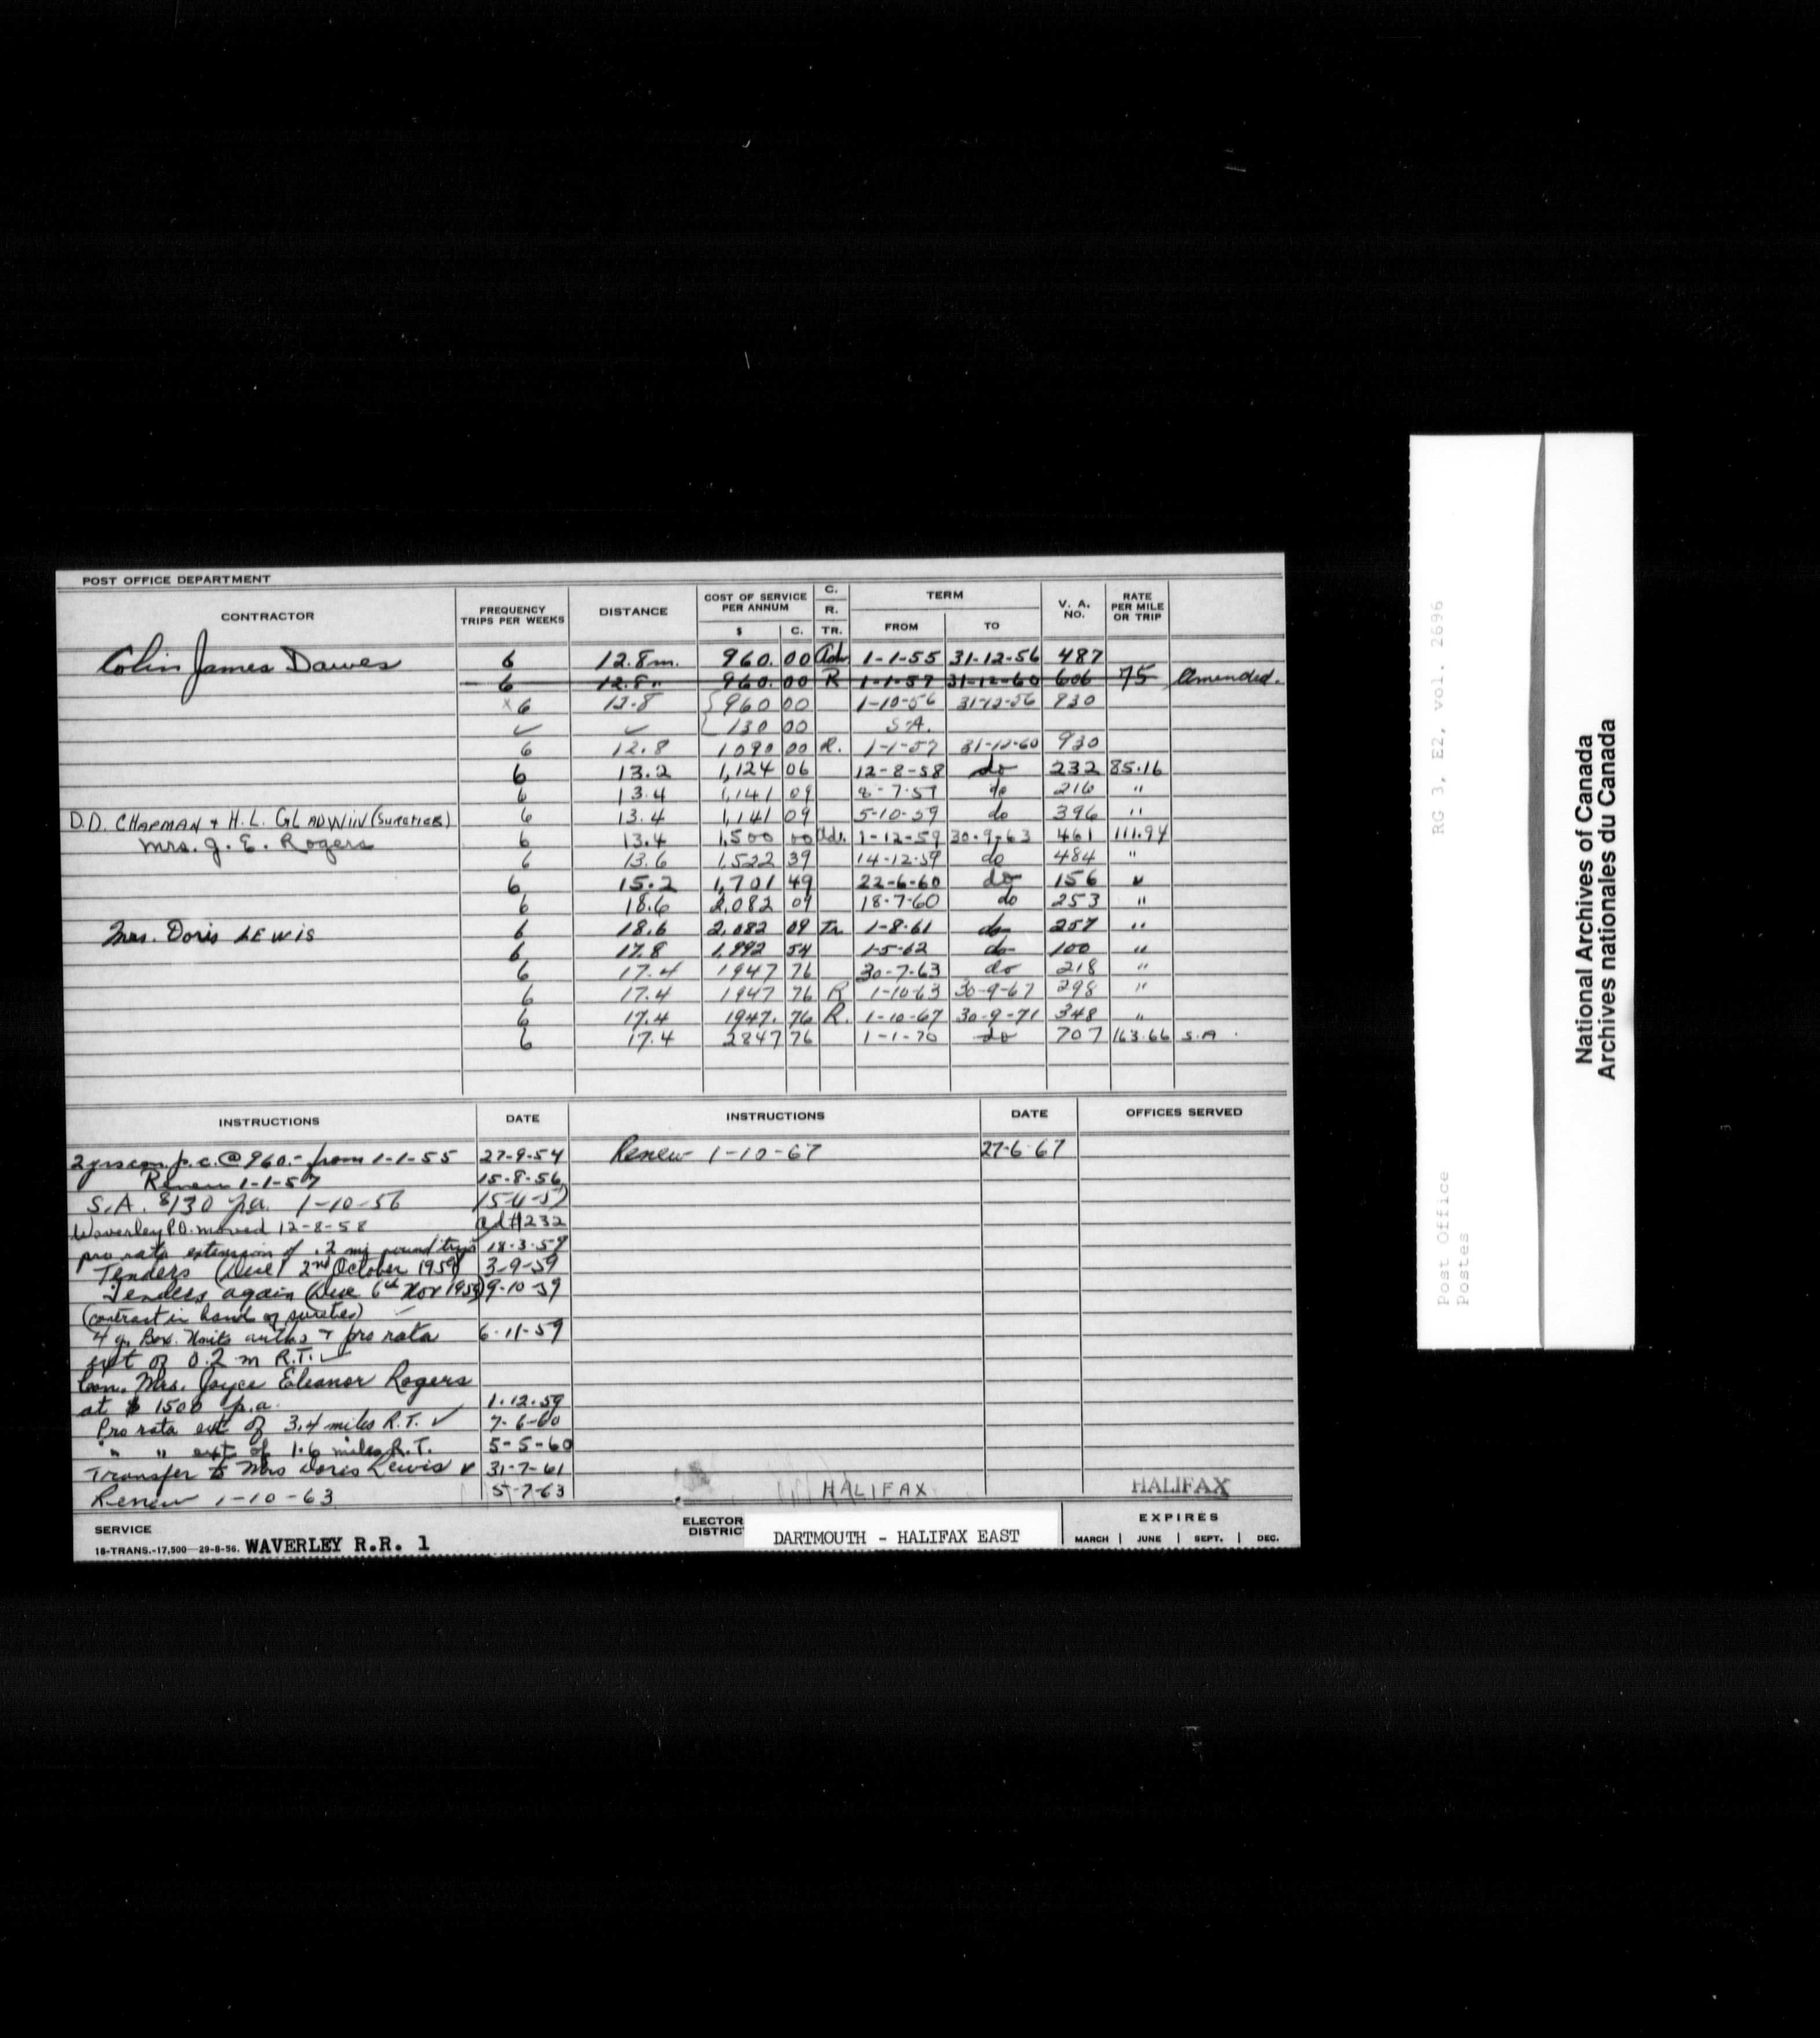 POST OFFICE DEPARTMENT
CONTRACTOR FREQUENCY TRIPS PER WEEKS DISTANCE COST OF SERVICE PER ANNUM $ C. C. R. TR. TERM FROM TO V. A. NO. RATE PER MILE OR TRIP
Colin James Dawes 6 12.8 m. 960. 00 1-1-55 31-12-56 487
6 12.8 " 960. 00 R 1-1-57 31-12-60 606 75 Amended.
x 6 12.8 960 00 1-10-56 31-12-56 930
✓ ✓ 130 00 S.A.
6 12.8 1090 00 R. 1-1-57 31-12-60 930
6 13.2 1,124 06 12-8-58 do 232 85.16
6 13.4 1,141 09 8-7-59 do 216 "
D.D. CHAPMAN & H.L. GLADWIN (SURETIES) 6 13.4 1,141 09 5-10-59 do 396 "
Mrs. J. E. Rogers 6 13.4 1,500 00 1-12-59 30-9-63 461 111.94
6 13.6 1,522 39 14-12-59 do 484 "
6 15.2 1,701 49 22-6-60 do 156 "
6 18.6 2,082 09 18-7-60 do 253 "
Mrs. Doris LEWIS 6 18.6 2,082 09 Tr. 1-8-61 do 257 "
6 17.8 1,992 54 1-5-62 do 100 "
6 17.4 1947 76 30-7-63 do 218 "
6 17.4 1947 76 R 1-10-63 30-9-67 298 "
6 17.4 1947. 76 R. 1-10-67 30-9-71 348 "
6 17.4 2847 76 1-1-70 do 707 163.66 S.A.
INSTRUCTIONS DATE INSTRUCTIONS DATE OFFICES SERVED
2 yrs con. p.c. @ 960.- from 1-1-55 27-9-54 Renew 1-10-67 27-6-67
Renew 1-1-57 15-8-56
S.A. $130 p.a. 1-10-56
Waverley P.O. moved 12-8-58 ad #232
pro rata extension of .2 mi round trip 18-3-59
Tenders (Due 2nd October 1959) 3-9-59
Tenders again (Due 6th Nov 1959) 9-10-59
(contract in hand of sureties)
4 Box Units auths & pro rata 6-11-59
ext of 0.2 m R.T. ✓
Con. Mrs. Joyce Eleanor Rogers
at $ 1500 p.a. 1-12-59
Pro rata ext of 3.4 miles R.T. ✓ 7-6-60
" " ext of 1.6 miles R.T. 5-5-60
Transfer to Mrs Doris Lewis ✓ 31-7-61
Renew 1-10-63 5-7-63 HALIFAX HALIFAX
SERVICE
18-TRANS.-17,500—29-8-56. WAVERLEY R.R. 1
ELECTOR
DISTRIC
DARTMOUTH - HALIFAX EAST
EXPIRES
MARCH | JUNE | SEPT. | DEC.
RG 3, E2, vol. 2696
Post Office
Postes
National Archives of Canada
Archives nationales du Canada